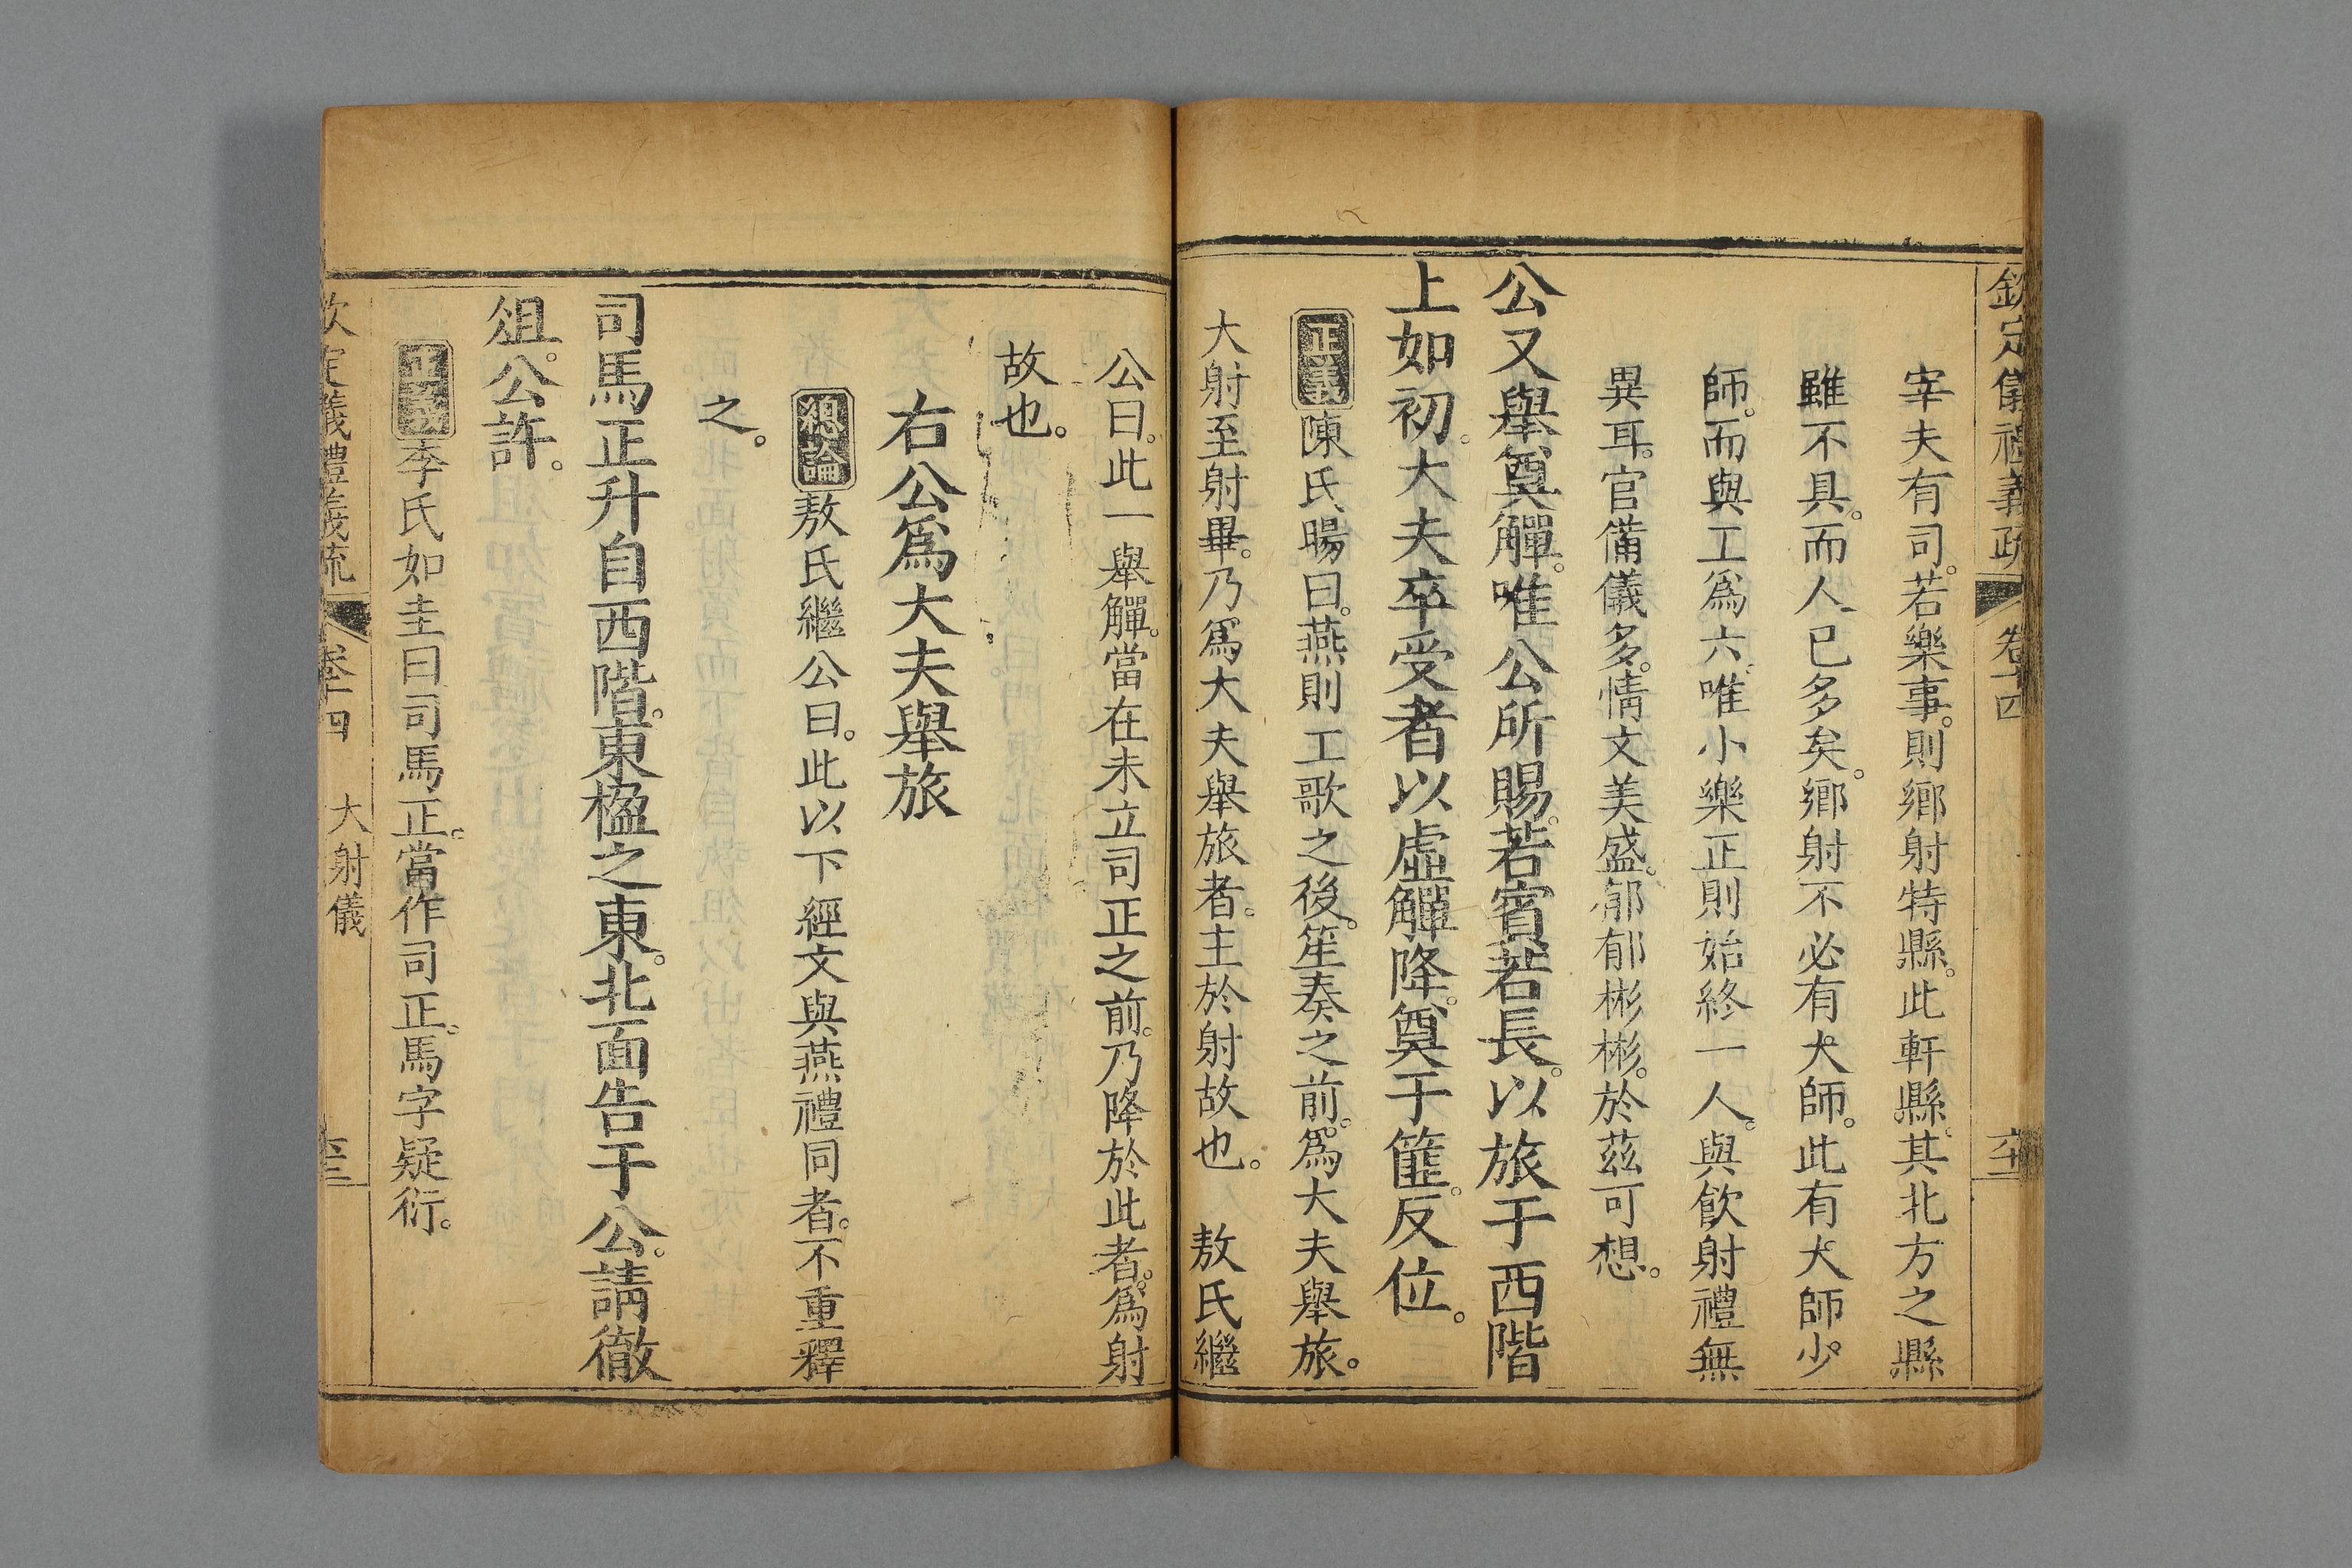 欽定儀禮義疏 卷十四
宰夫有司。若樂事。則鄉射特縣。此軒縣。其北方之縣
雖不具。而人已多矣。鄉射不必有大師。此有大師少
師。而與工爲六。唯小樂正則始終一人。與飲射禮無
異耳。官備儀多。情文美盛。郁郁彬彬。於茲可想。
公又舉奠觶。唯公所賜。若賓若長。以旅于西階
上如初。大夫卒受者以虛觶降。奠于篚。反位。
正義陳氏暘曰。燕則工歌之後。笙奏之前。爲大夫舉旅。
大射至射畢。乃爲大夫舉旅者。主於射故也。 敖氏繼
公曰。此一舉觶。當在未立司正之前。乃降於此者。爲射
故也。
右公爲大夫舉旅
總論敖氏繼公曰。此以下經文與燕禮同者。不重釋
之。
司馬正升自西階。東楹之東。北面告于公。請徹
俎。公許。
正義李氏如圭曰司馬正。當作司正。馬字疑衍。
欽定儀禮義疏 卷十四 大射儀